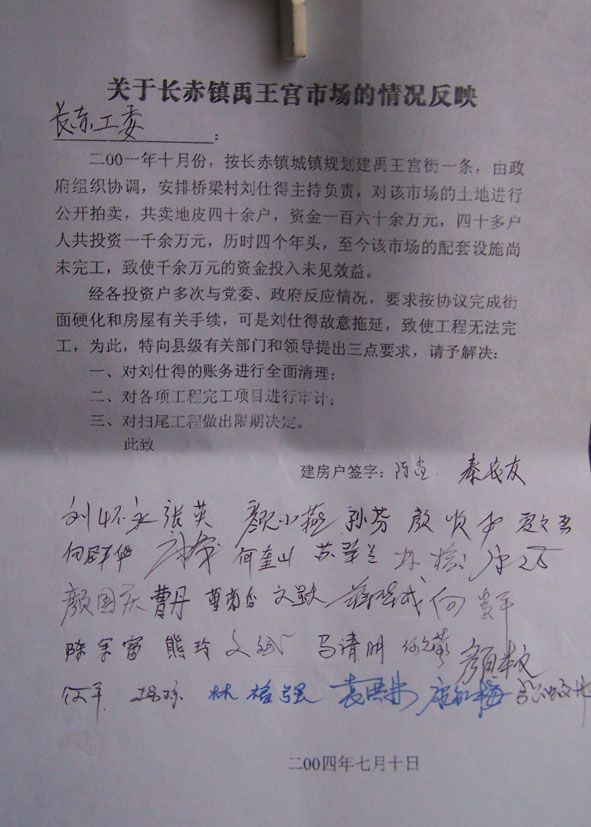 关于长赤镇禹王宫市场的情况反映
长赤工委：
二00一年十月份，按长赤镇城镇规划建禹王宫街一条，由政
府组织协调，安排桥梁村刘仕得主持负责，对该市场的土地进行
公开拍卖，共卖地皮四十余户，资金一百六十余万元，四十多户
人共投资一千余万元，历时四个年头，至今该市场的配套设施尚
未完工，致使千余万元的资金投入未见效益。
经各投资户多次与党委、政府反应情况，要求按协议完成街
面硬化和房屋有关手续，可是刘仕得故意拖延，致使工程无法完
工，为此，特向县级有关部门和领导提出三点要求，请予解决：
一、对刘仕得的账务进行全面清理；
二、对各项工程完工项目进行审计；
三、对扫尾工程做出限期决定。
此致
建房户签字： 秦长友
张英 颜小燕 孙芬 颜
何奎山 苏翠兰
颜国庆 曹丹 何
熊玲 马清明
何平 林格强
二00四年七月十日